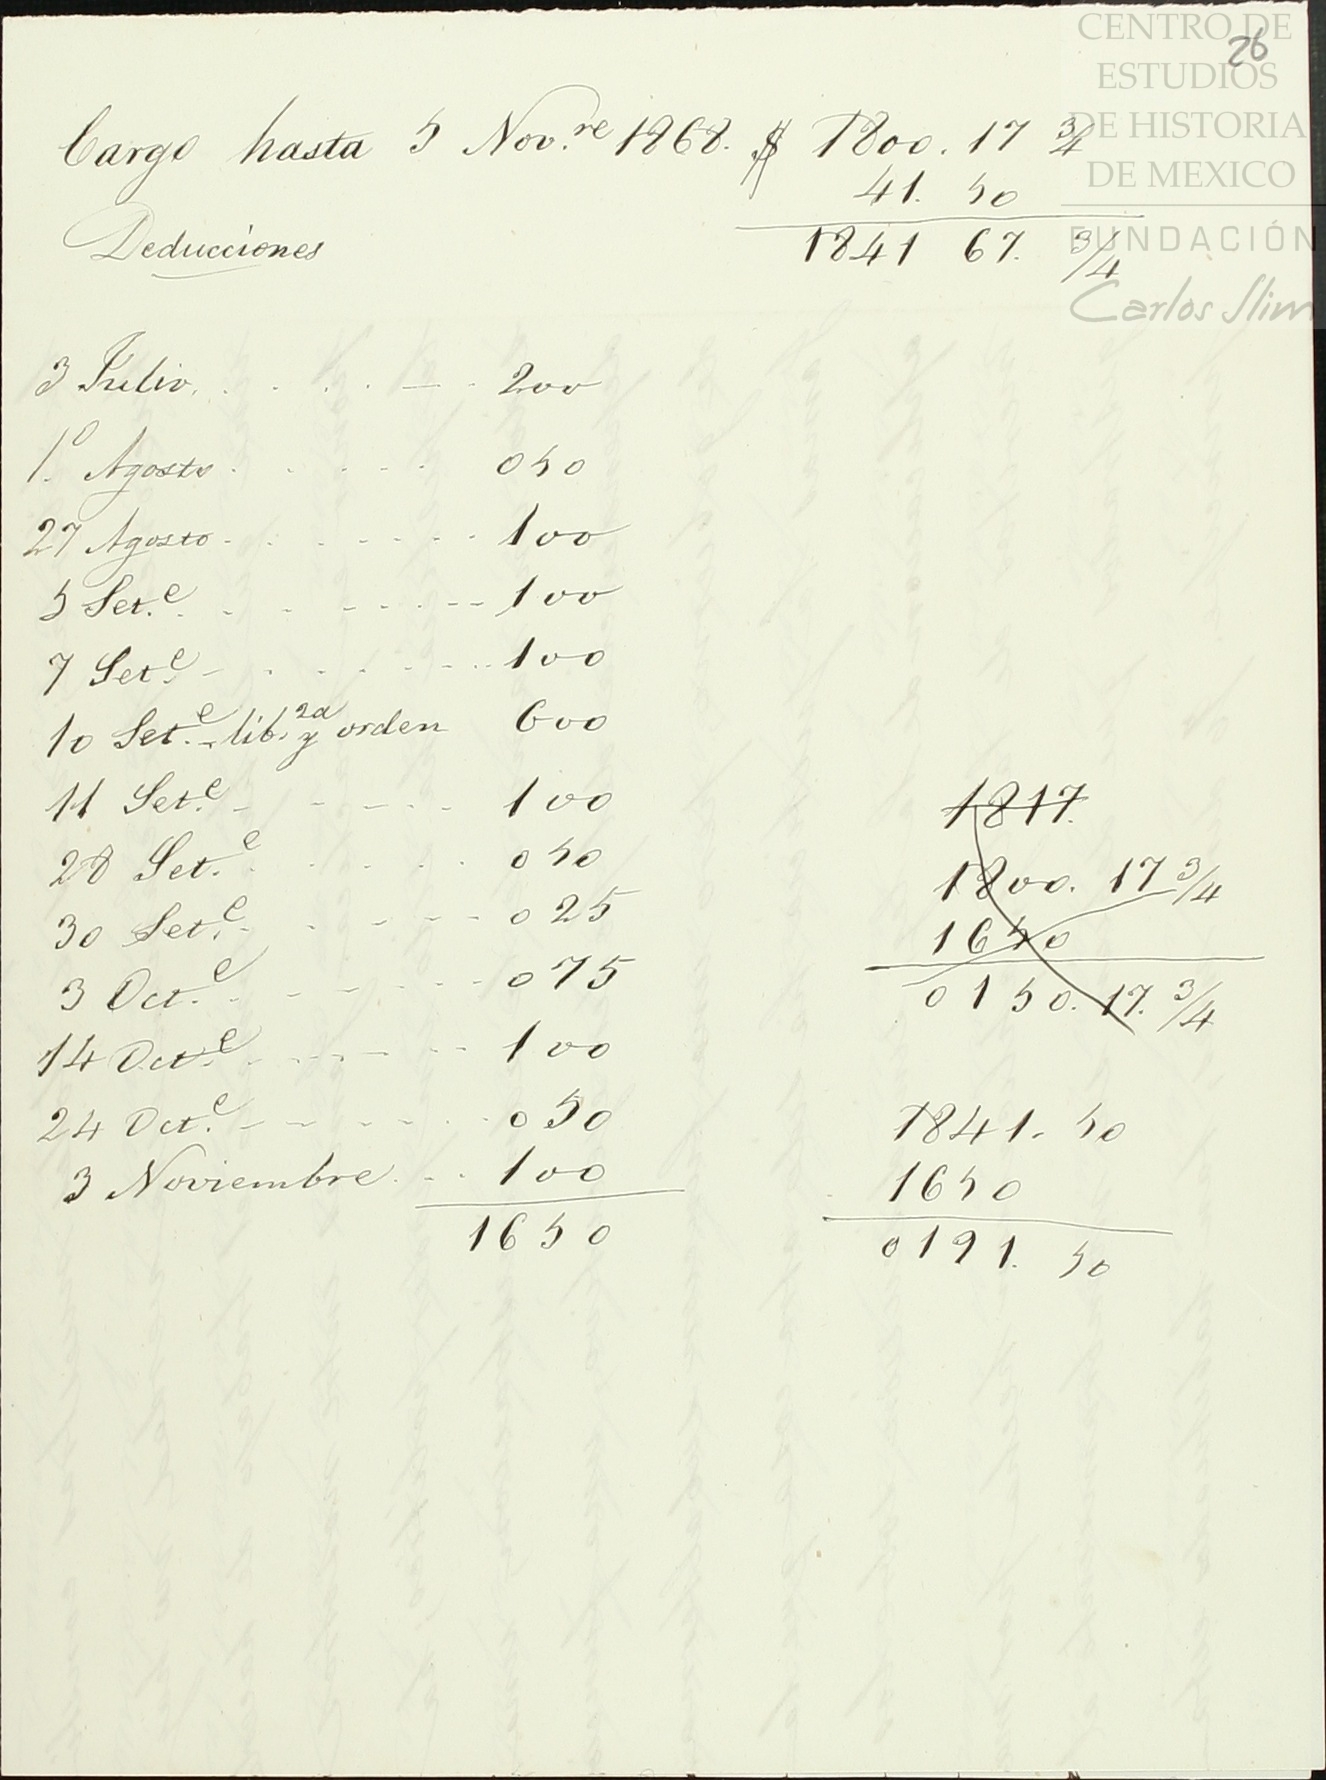 CENTRO DE
ESTUDIOS
DE HISTORIA
DE MEXICO
FUNDACIÓN
Carlos Slim
26
Cargo hasta 5 Nov.re 1868. $ 1800. 17 3/4
41. 50
Deducciones 1841 67. 3/4
3 Julio. . . . . — . 200
1.º Agosto . . . . . . 050
27 Agosto - . . - . - - - 100
5 Set.e . - - - - - - - - 100
7 Set.e - . - . - - - 100
10 Set.e - lib.2a y orden 600
11 Set.e - - - - - 100
28 Set.e . . . . . . 050
30 Set.e - . - - - - 025
3 Oct.e - - - - - - - 075
14 Oct.e - - - - - - - 100
24 Oct.e - - - - - - . 050
3 Noviembre . - - 100
1650
1817.
1800. 17 3/4
1650
0150. 17. 3/4
1841. 50
1650
0191. 50